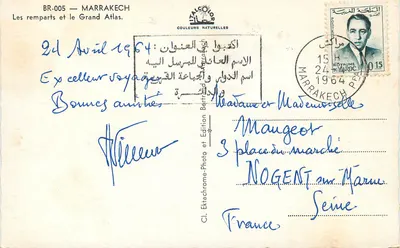 BR-005 - MARRAKECH
Les remparts et le Grand Atlas.
ITALCOLOR
COULEURS NATURELLES
24 Avril 1964.
Excellent voyage
Bonnes amitiés
اكتبوا في العنوان:
الاسم العائلي للمرسل اليه
اسم الدوار والجماعة القروية
والدائرة
مراكش
15 H
24-4
1964
MARRAKECH
0,15
Cl. Ektachrome-Photo et Edition
Madame et Mademoiselle
Maugeot
3 place du marché
NOGENT sur Marne
Seine
France